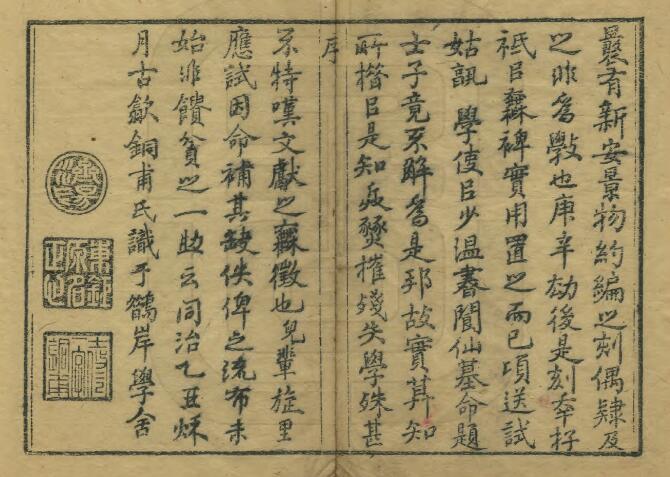 曩有新安景物約編之刻偶肄及
之非為斆也庚辛劫後是刻卒存
祗㠯無裨實用置之而已頃送試
姑孰 學使㠯少温書閬仙墓命題
士子竟不解為是邦故實其知
所㮣㠯是知兵燹摧殘失學殊甚
序
不特嘆文獻之無徵也兒輩旋里
應試因命補其缺佚俾之流布未
始非饋貧之一助云同治乙丑秌
月古歙銅甫氏識于鵲岸學舍